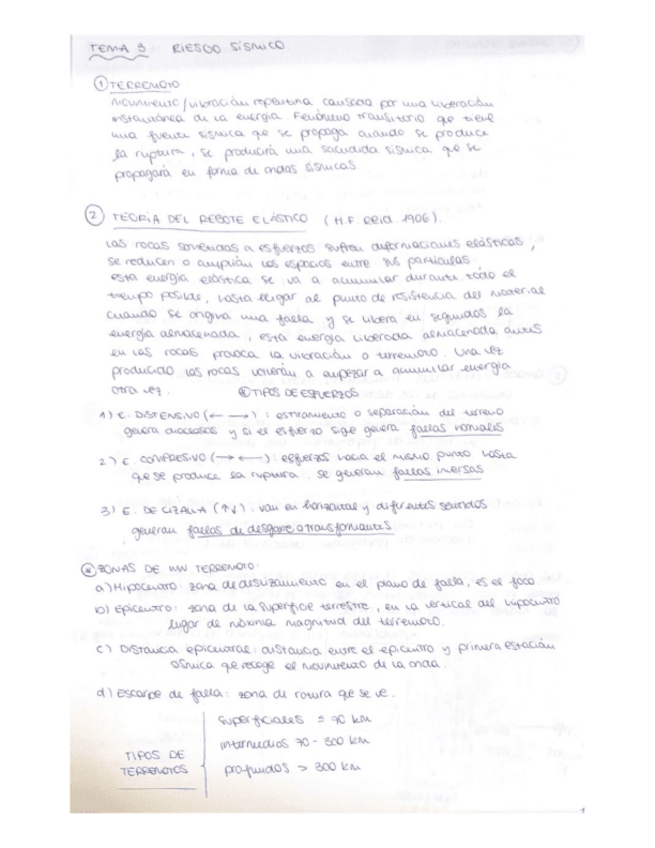 TEMA 3 RIESGO SÍSMICO
① TERREMOTO
Movimiento/vibración repentina causada por una liberación
instantánea de la energía. Fenómeno transitorio que tiene
una fuente sísmica que se propaga cuando se produce
la ruptura, se producirá una sacudida sísmica que se
propagará en forma de ondas sísmicas.
② TEORÍA DEL REBOTE ELÁSTICO (H.F. Reid 1906).
Las rocas sometidas a esfuerzos sufren deformaciones elásticas,
se reducen o amplían los espacios entre sus partículas
esta energía elástica se va a acumular durante todo el
tiempo posible, hasta llegar al punto de resistencia del material
cuando se origina una falla y se libera en segundos la
energía almacenada, esta energía liberada almacenada antes
en las rocas provoca la vibración o terremoto. Una vez
producido las rocas volverán a empezar a acumular energía
otra vez. TIPOS DE ESFUERZOS
1) E. DISTENSIVO (← →) : estiramiento o separación del terreno
genera diaclasas y si el esfuerzo sigue genera fallas normales
2) E. COMPRESIVO (→ ←) : esfuerzos hacia el mismo punto hasta
que se produce la ruptura. Se generan fallas inversas
3) E. DE CIZALLA (↑↓) : van en horizontal y diferentes sentidos
generan fallas de desgarre o transformantes
ZONAS DE UN TERREMOTO:
a) Hipocentro: zona de deslizamiento en el plano de falla, es el foco
b) Epicentro: zona de la superficie terrestre, en la vertical del hipocentro
lugar de máxima magnitud del terremoto.
c) Distancia epicentral: distancia entre el epicentro y primera estación
sísmica que recoge el movimiento de la onda.
d) Escarpe de falla: zona de rotura que se ve.
TIPOS DE TERREMOTOS
superficiales = 70 km
intermedios 70 - 300 km
profundos > 300 km
1